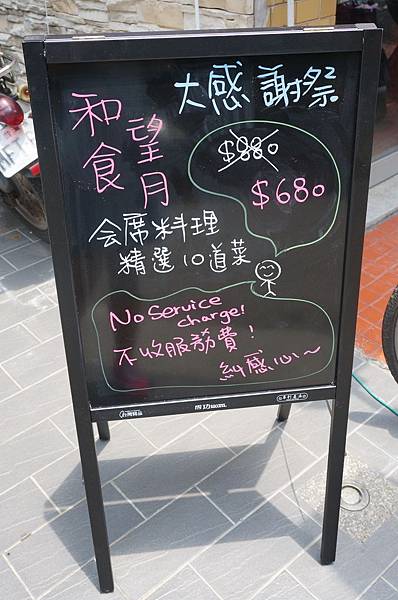 大感謝祭
和食
望月
$880
$680
会席料理
精選10道菜
No Service
charge!
不收服務費!
糾感心~